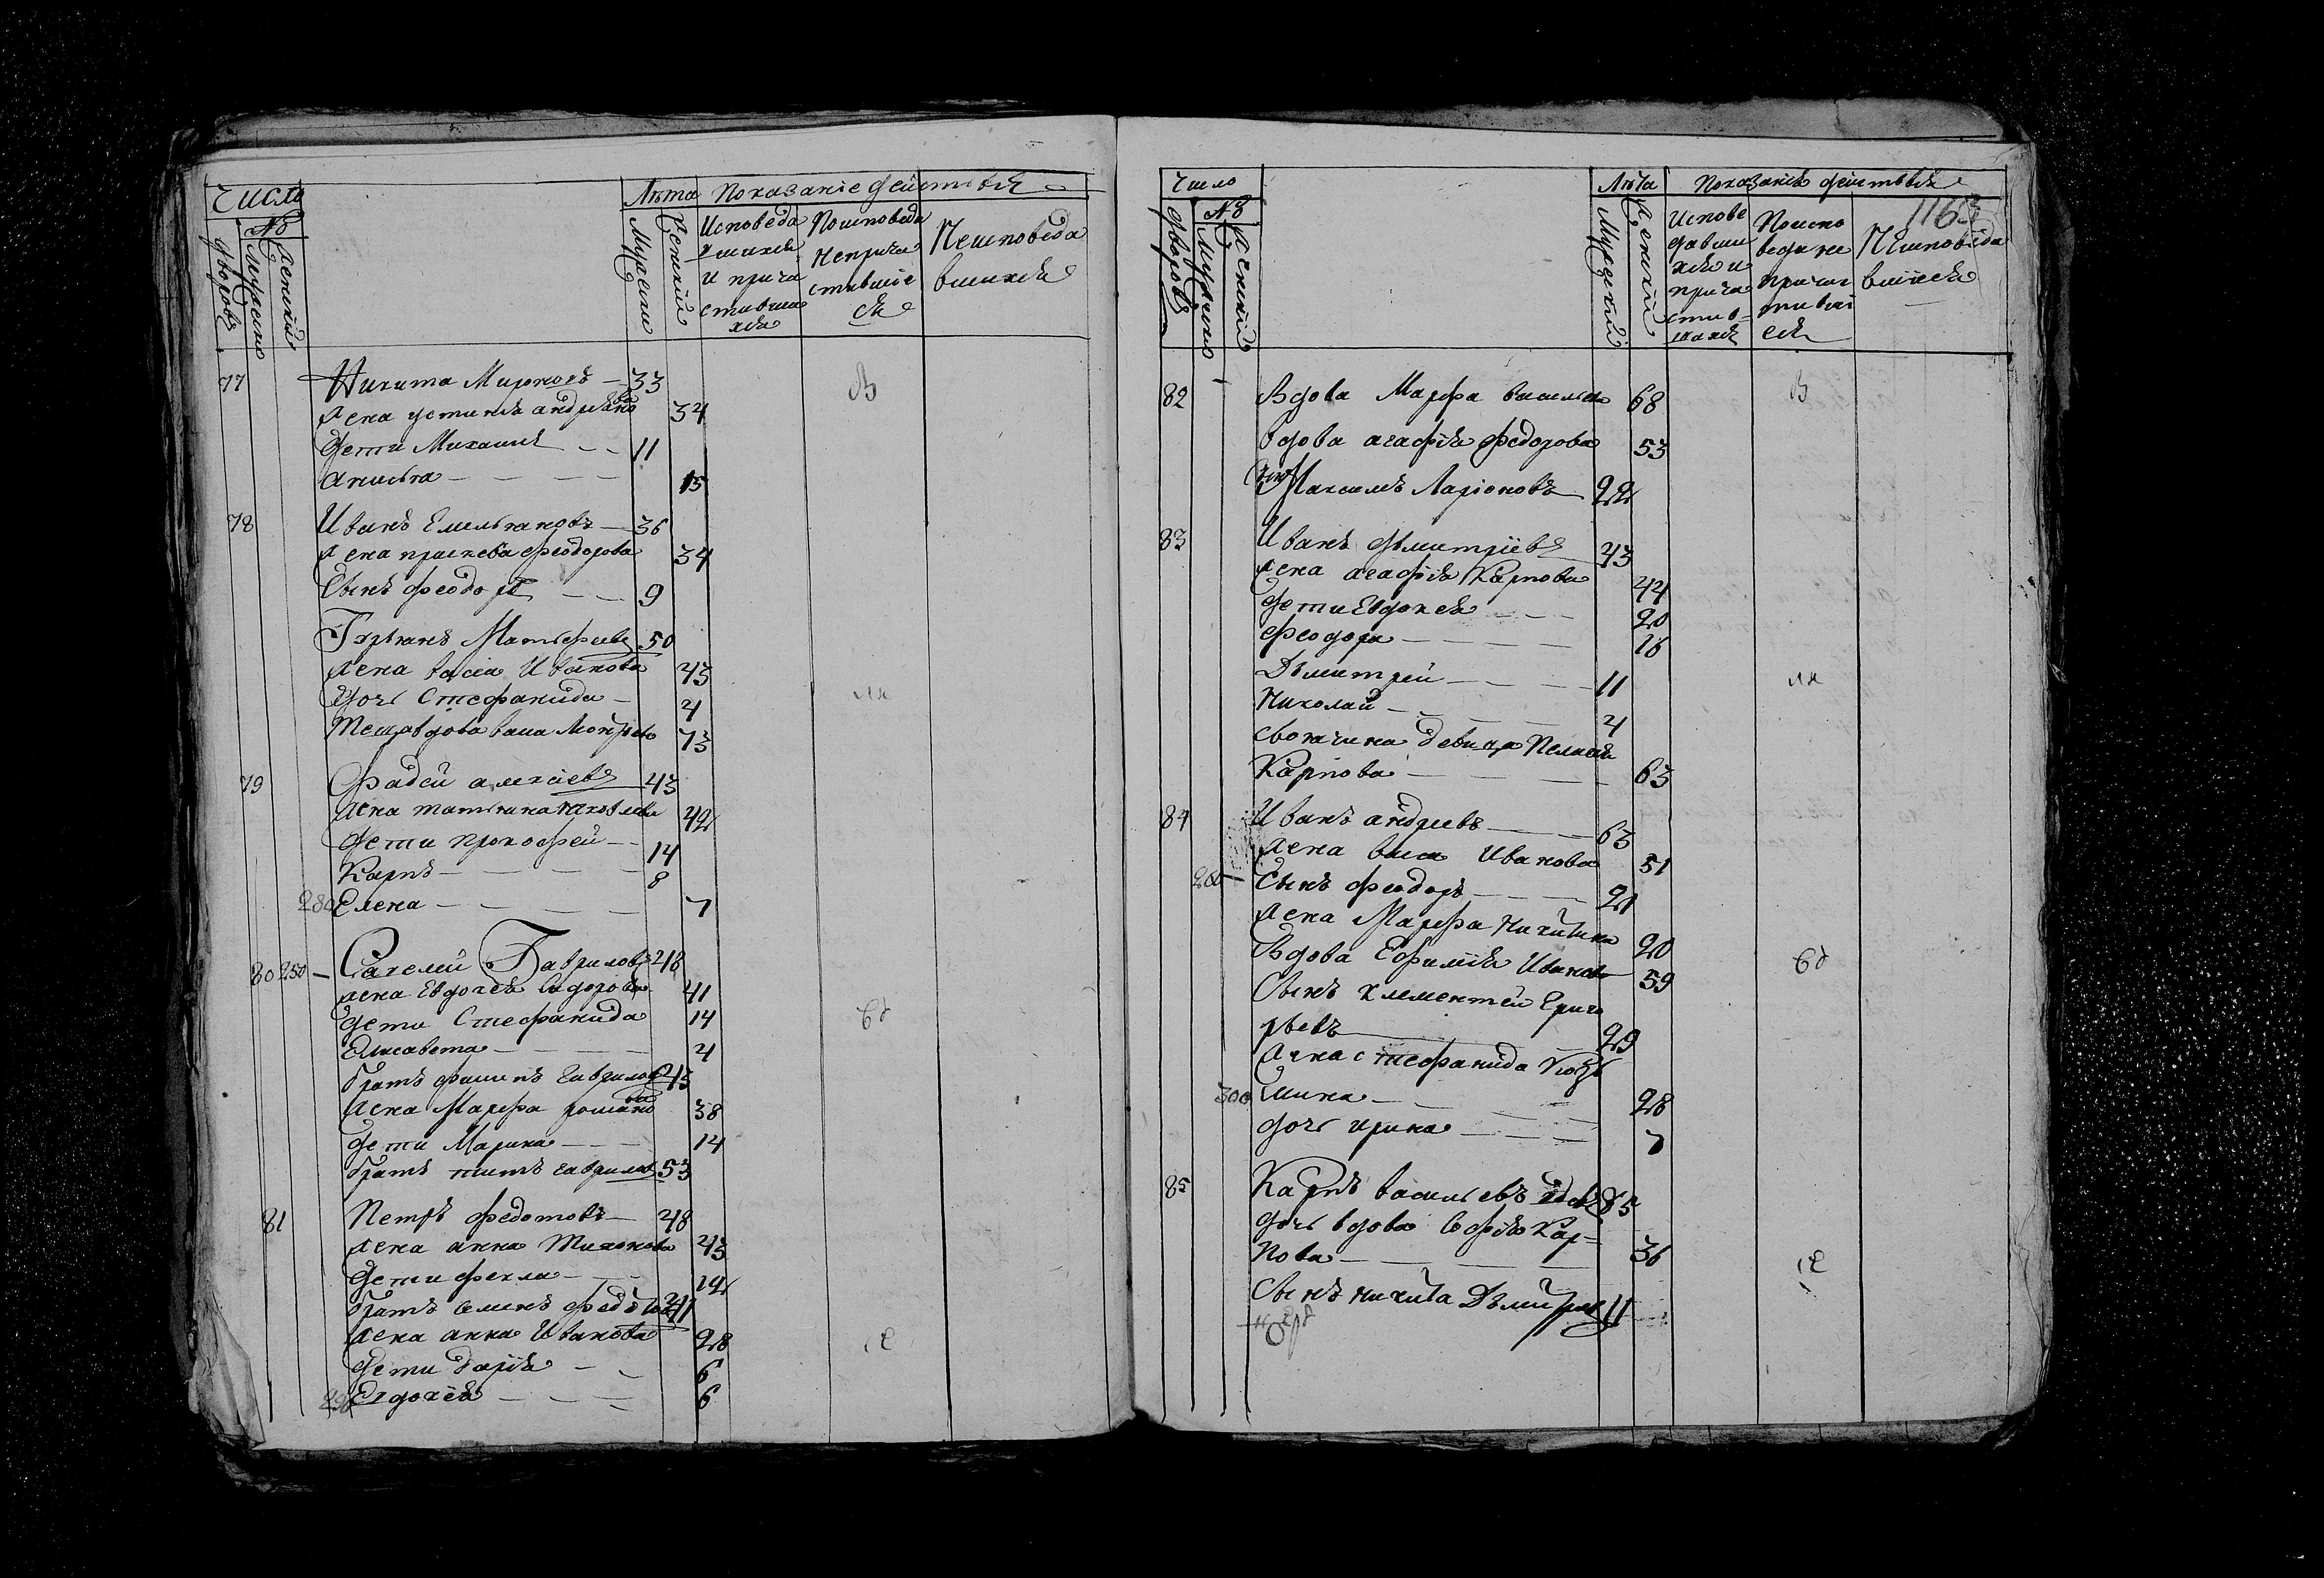 Число
Лѣта Показаніе действія
№
дворовъ
Мужески
Женскій
Мужески
Женскій
Исповеда
вшихся
и прича
стивши
хся
Поисповеда
Непричи
стившіе
ся
Неисповеда
вшихся
77 Никита Мироновъ 33 В
Жена устинья андреяно
ва 34
Дети Михаилъ 11
Анисья 15
78 Иванъ Емельяновъ 36
Жена прасковья феодорова 34
Сынъ феодоръ 9
Матфеевъ 50
Жена васса Иванова 43
Дочь Стефанида 4
Теща вдова васса 73
79 Фадей алексіевъ 43
Жена татьяна яковлева 42
Дети прокофей 14
Карпъ 8
280 Елена 7
80 250 Савелий Гавриловъ 48
Жена Евдокея Сидорова 41
Дети Стефанида 14
Елисавета 4
Братъ филипъ гавриловъ 43
Жена Марфа романо
ва 38
Дети Марина 14
Братъ титъ гавриловъ 53
81 Петръ федотовъ 48
Жена анна Тихонова 43
Дети фекла 12
Братъ Семенъ федотовъ 41
Жена анна Иванова 28
Дети дарія 6
Евдокея 6
Число
Лѣта Показаніе действія
№
дворовъ
Мужески
Женскій
Мужеский
Женскій
Испове
давши
хся и
прича
стив-
шихся
Поиспо
веда не
причи
стивші
еся
Неисповеда
вшіеся
82 Вдова Марфа васильева 68 В
вдова агафія федорова 53
Максимъ Ларіоновъ 22
83 Иванъ дьмитріевъ 43
жена агафія Карпова 44
Дети Евдокея 20
феодора 16
Дъмитрей 11
Николай 4
своячина девица Пелагея
Карпова 63
84 Иванъ андреевъ 63
жена васса Иванова 51
260 Сынъ феодоръ 21
жена Марфа Никитина 20
Вдова Ефимія Иванова 59
Сынъ клементей Григо
рьевъ 29
Жена стефанида Козь
300 мина 28
дочь ирина 7
85 Карпъ васильевъ вдовъ 85
дочь вдова Софія Кар-
пова 36
Сынъ никита Дъмитріевъ 11